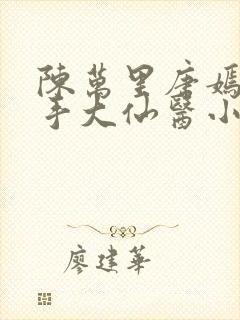 陳萬里唐嫣
手大仙醫小
廖建華